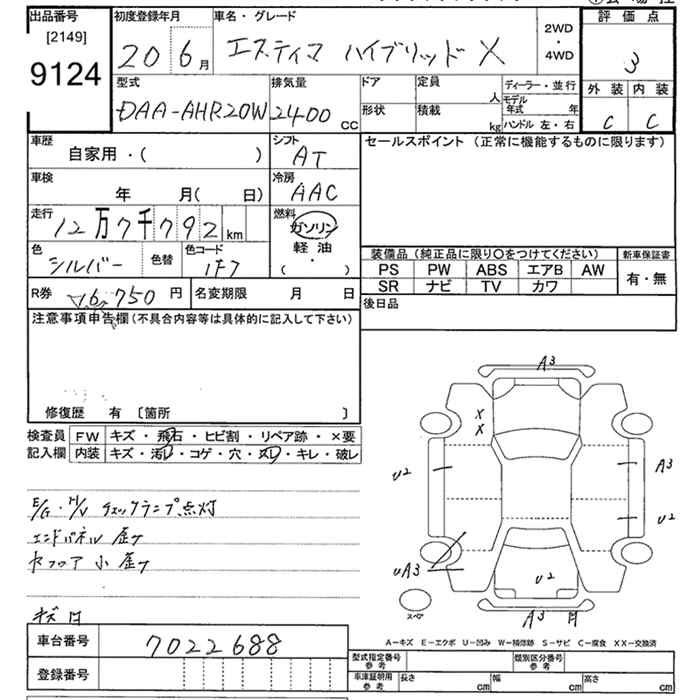 出品番号 初度登録年月 車名・グレード 評価点
[2149]
9124
20 6月
エスティマ ハイブリッド X
2WD
・
4WD
3
外装 内装
C C
型式 排気量 ドア 定員 人 ディーラー・並行
DAA-AHR20W 2400 CC
形状 積載 kg
モデル年式 年
ハンドル 左・右
車歴 シフト セールスポイント (正常に機能するものに限ります)
自家用・( ) AT
車検 冷房
年 月( 日) AAC
走行 燃料
12万7千792km ガソリン
軽油
・
( )
色 色替 色コード
シルバー 1F7
装備品(純正品に限り○をつけてください) 新車保証書
PS PW ABS エアB AW 有・無
SR ナビ TV カワ
R券 16,750円 名変期限 月 日 後日品
注意事項申告欄(不具合内容等は具体的に記入して下さい)
修復歴 有 [箇所 ]
検査員 FW キズ・飛石・ヒビ割・リペア跡・×要
記入欄 内装 キズ・汚レ・コゲ・穴・スレ・キレ・破レ
E/G・H/V チェックランプ点灯
エンドパネル 歪ケ
小 歪ケ
キズ 凹
A3
X
X
U2 A3
U2
UA3 U2
スペア
A3 凹
A-キズ E-エクボ U-凹み W-補修跡 S-サビ C-腐食 XX-交換済
車台番号 7022688
登録番号
型式指定番号 参考 類別区分番号 参考
車庫証明用 参考 長さ cm 幅 cm 高さ cm